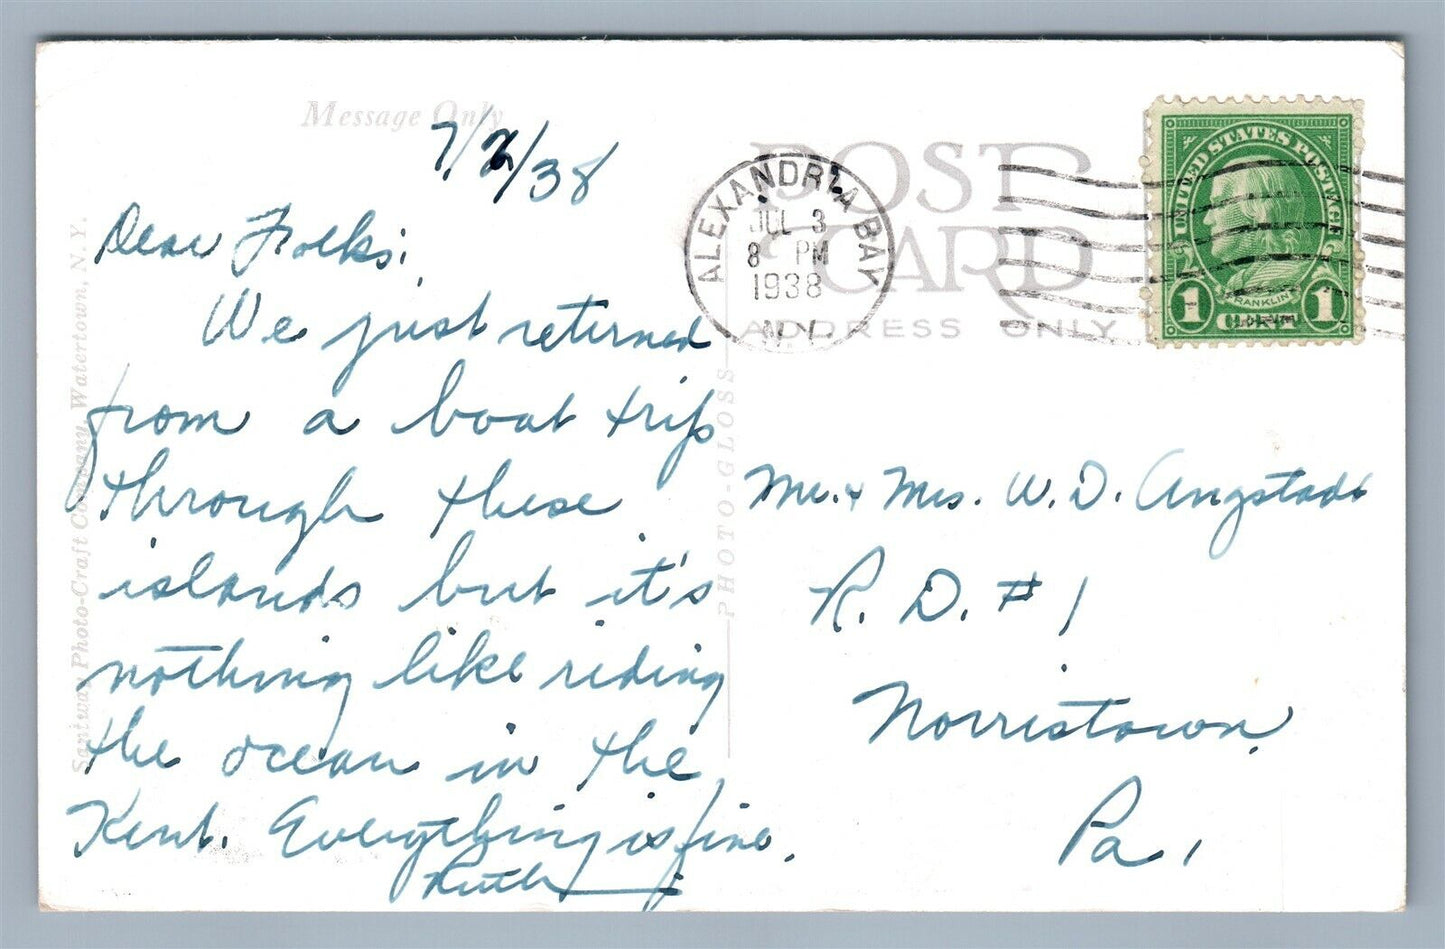 Message Only
7/2/38
Dear Folks:
We just returned
from a boat trip
through these
islands but it's
nothing like riding
the ocean in the
Kent. Everything is fine.
Ruth
Santway Photo-Craft Company, Watertown, N.Y.
PHOTO-GLOSS
POST
CARD
ADDRESS ONLY
ALEXANDRIA BAY
JUL 3
8 PM
1938
N.Y.
UNITED STATES POSTAGE
FRANKLIN
1 CENT 1
Mr. & Mrs. W. D. Angstadt
R. D. #1
Norristown,
Pa.